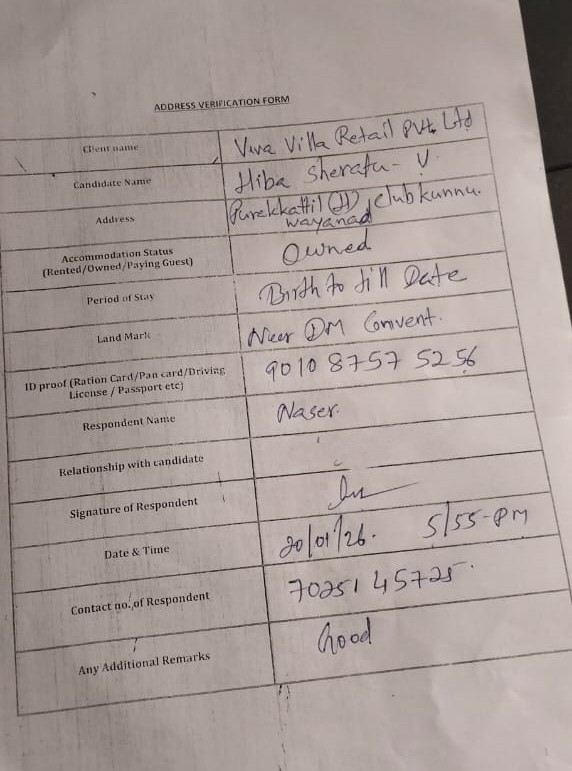 ADDRESS VERIFICATION FORM
Client name Viva Villa Retail Pvt Ltd
Candidate Name Hiba Sherafu - V.
Address Purekkattil (H), Clubkunnu.
wayanad
Accommodation Status
(Rented/Owned/Paying Guest) Owned
Period of Stay Birth to till Date
Land Mark Near DM Convent.
ID proof (Ration Card/Pan card/Driving
License / Passport etc) 9010 8757 5256
Respondent Name Naser.
Relationship with candidate
Signature of Respondent
Date & Time 20/01/26. 5/55-PM
Contact no. of Respondent 70251 45725
Any Additional Remarks Good